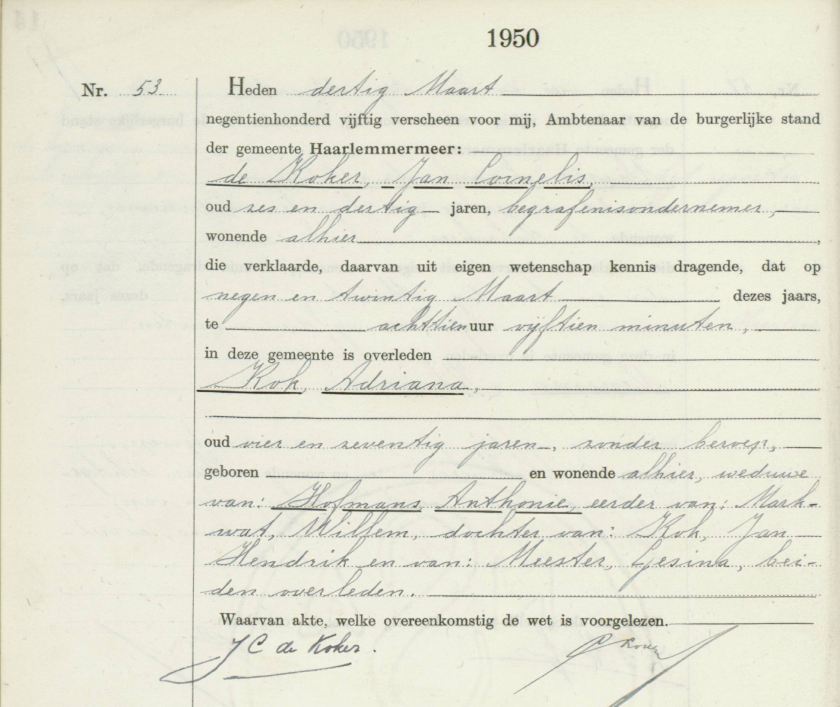 1950
Nr. 53
Heden dertig Maart
negentienhonderd vijftig verscheen voor mij, Ambtenaar van de burgerlijke stand
der gemeente Haarlemmermeer:
de Koker, Jan Cornelis,
oud zes en dertig jaren, begrafenisondernemer,
wonende alhier,
die verklaarde, daarvan uit eigen wetenschap kennis dragende, dat op
negen en twintig Maart dezes jaars,
te achttien uur vijftien minuten,
in deze gemeente is overleden
Kok, Adriana,
oud vier en zeventig jaren, zonder beroep,
geboren en wonende alhier, weduwe
van: Hofmans, Anthonie, eerder van: Mark-
wat, Willem, dochter van: Kok, Jan
Hendrik en van: Meester, Gesina, bei-
den overleden.
Waarvan akte, welke overeenkomstig de wet is voorgelezen.
J C de Koker.